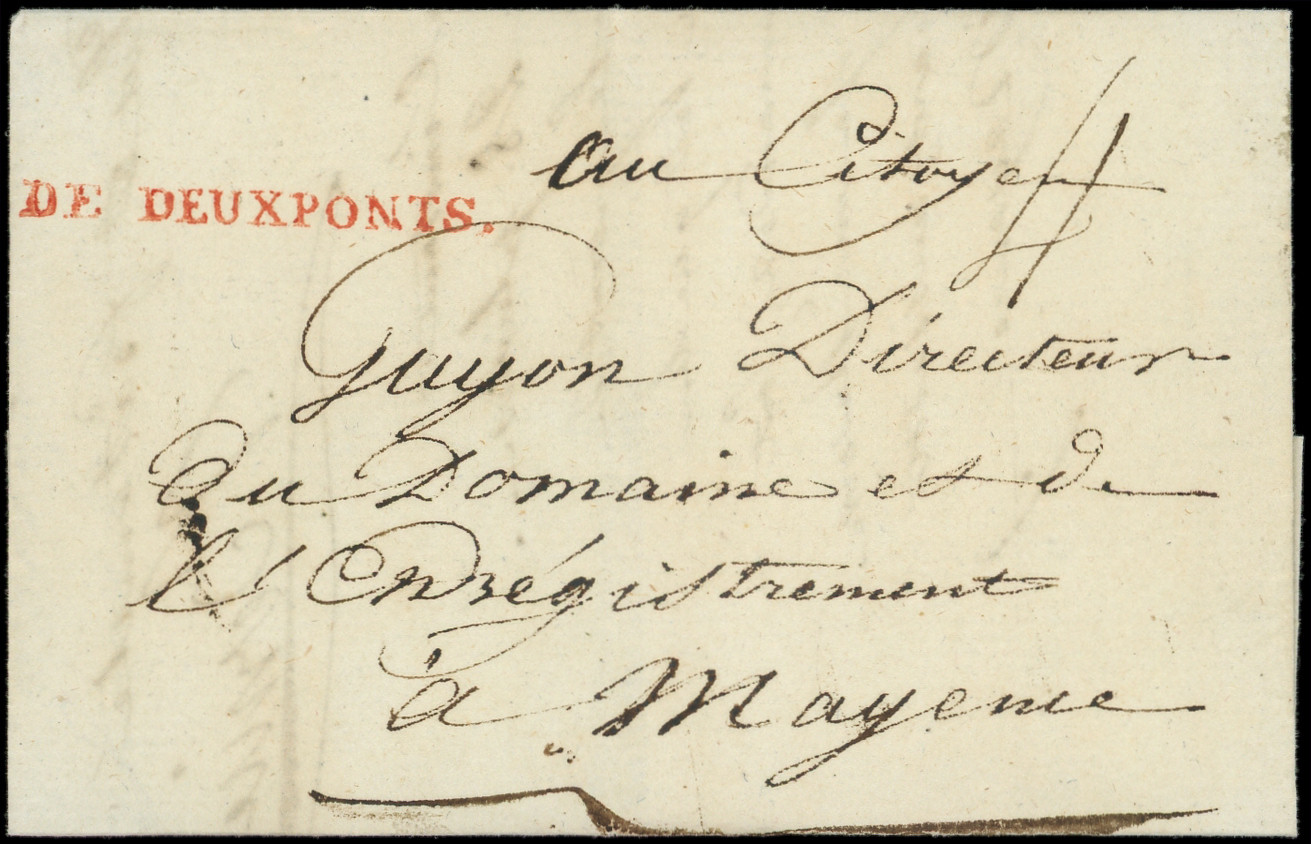 au Citoyen
DE DEUXPONTS.
Guyon Directeur
du Domaine et de
l'Enrégistrement
à Mayence